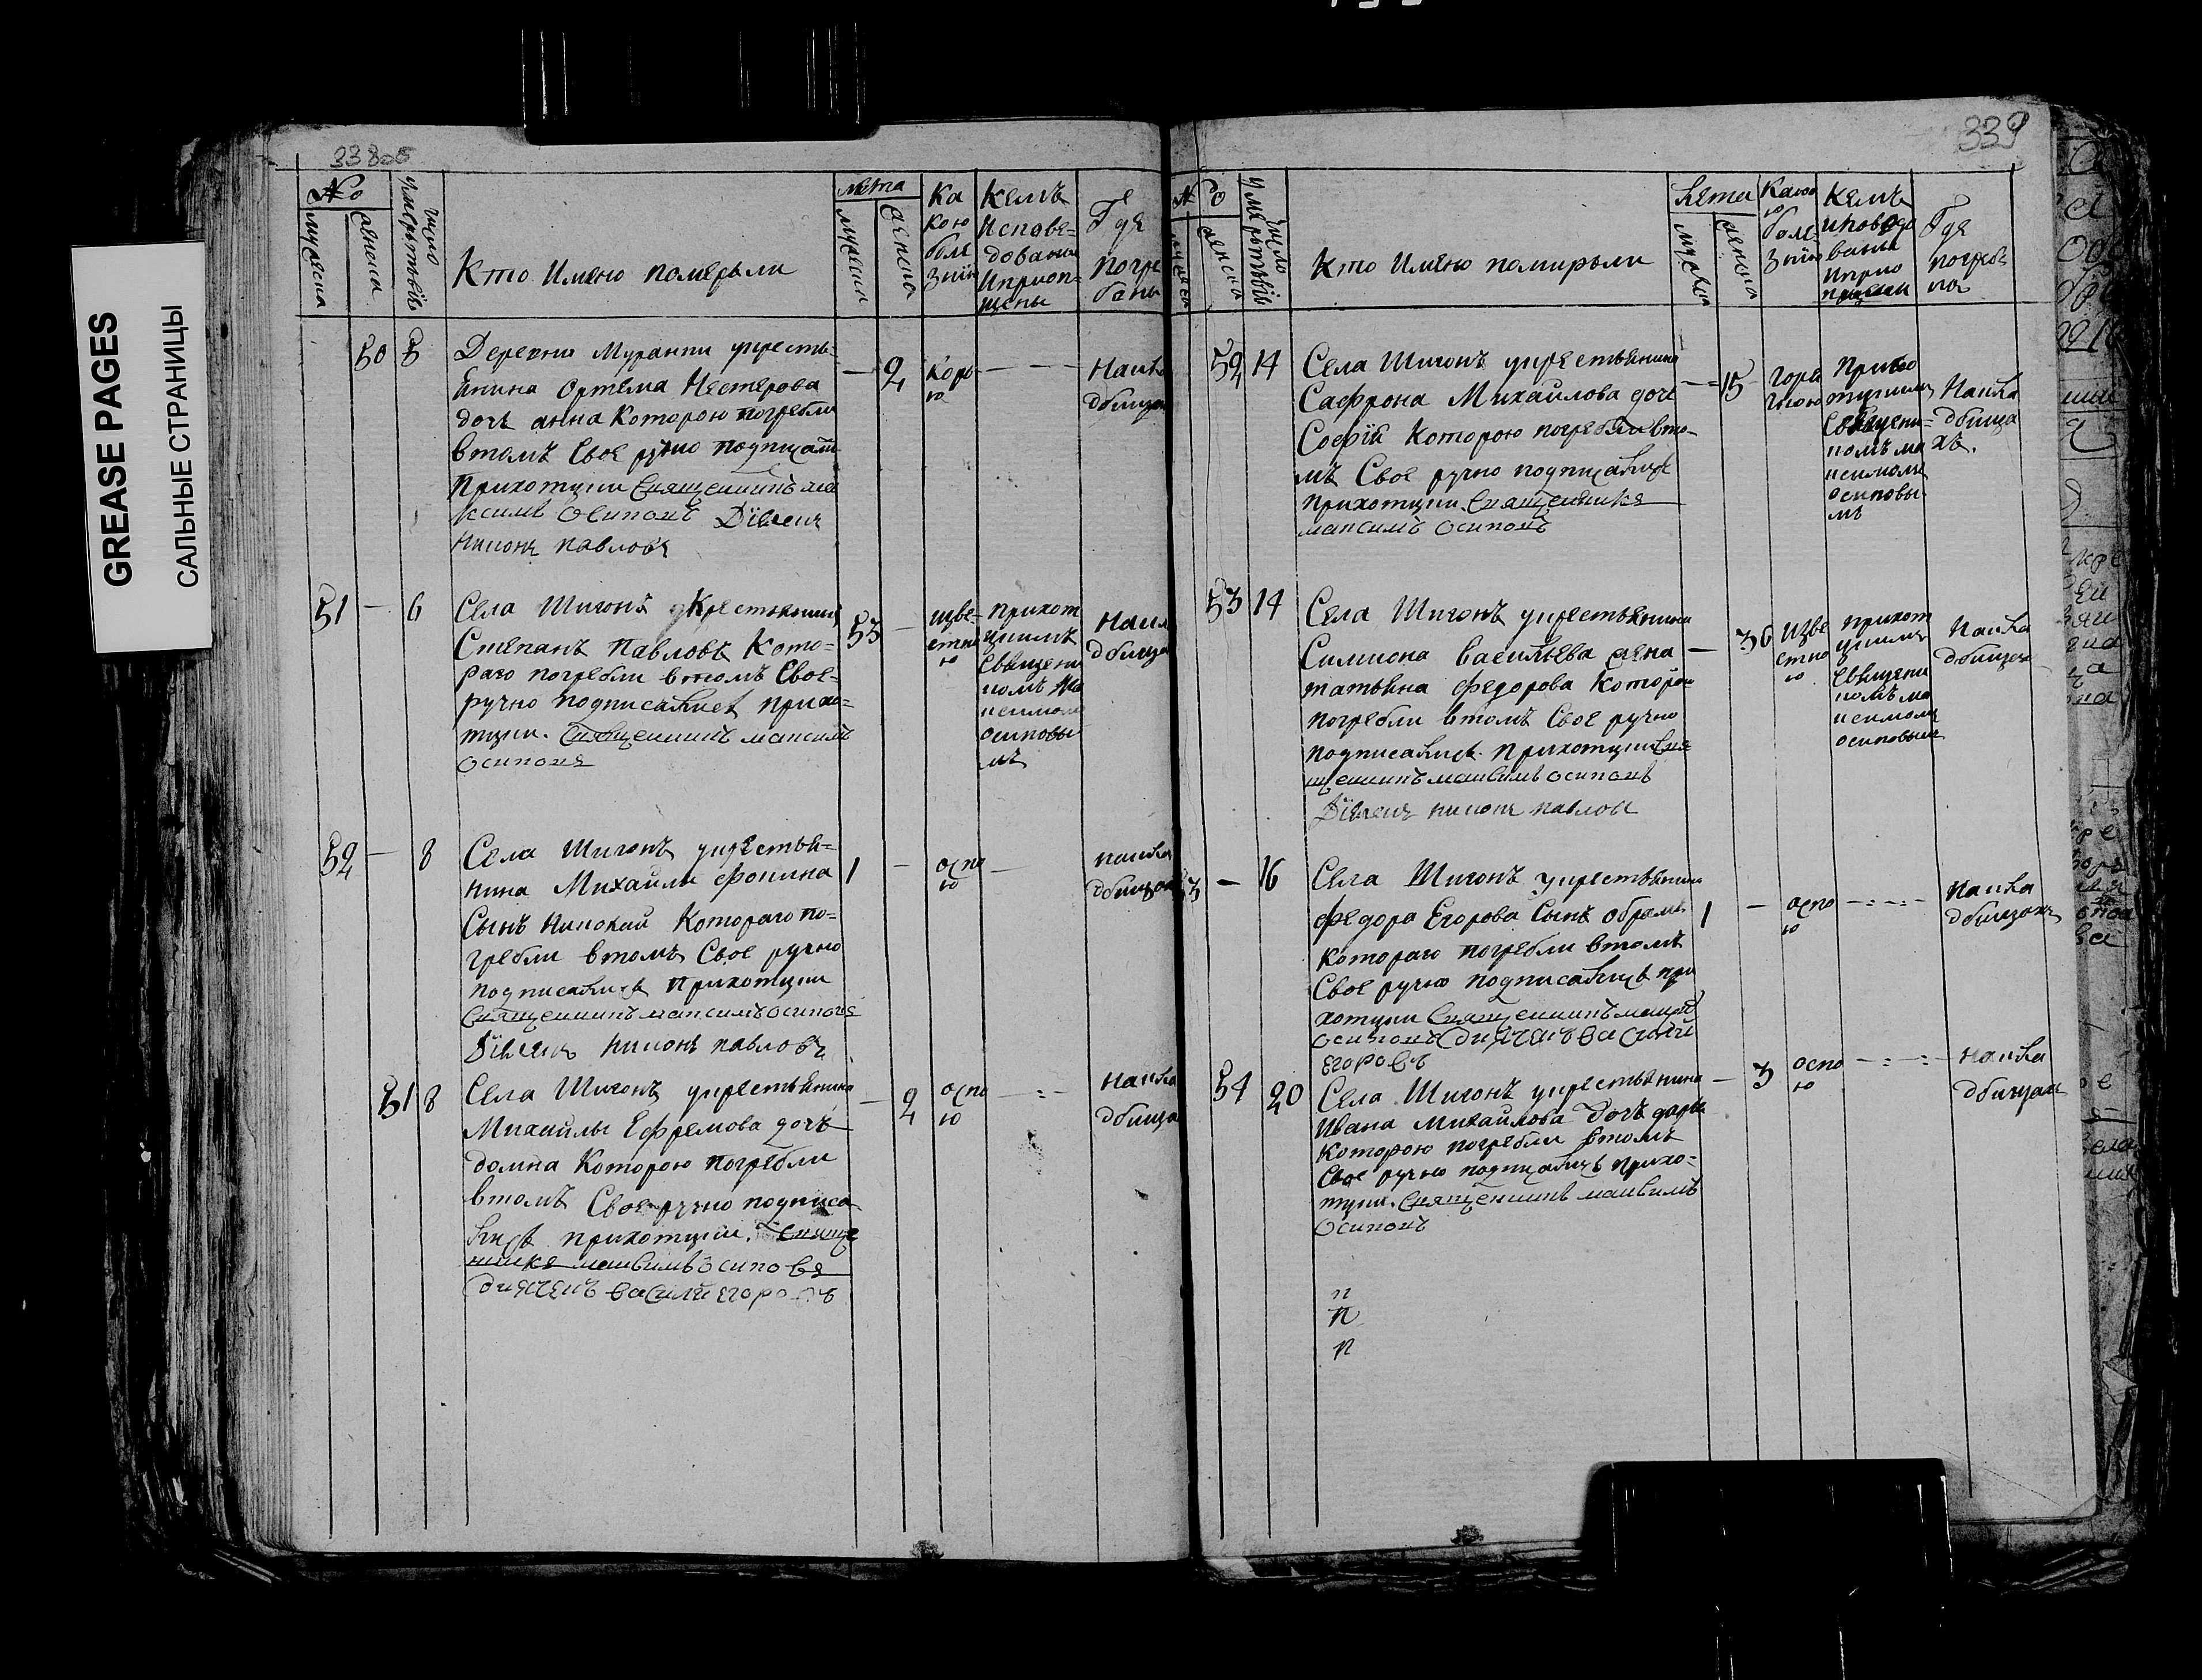 GREASE PAGES
САЛЬНЫЕ СТРАНИЦЫ
338об
№
мужеска
женска
число умертвiи
Кто Имено померыли
лета
мужеска
женска
Ка
кою
боле
знию
Кемъ
Испове-
дованы
Иприоп-
щены
Где
Погре
бены
50
5
Деревни Муранки укресть-
янина Ортема Нестерова
дочь анна Которою погребли
втомъ Свое ручно подписали
Прихотции Священникъ ма
ксимъ Осиповъ Дiячекъ
Никонъ Павловъ
—
2
Корь
ю
— — —
Накла
дбище
51
—
6
Села Шигонъ укрестьянинъ
Степанъ Павловъ Кото-
раго погребли втомъ Свое-
ручно подписались прихо-
тции. Священникъ максимъ
Осиповъ
53
—
изве-
стно
ю
прихот
цкимъ
Священи
комъ Ма
ксимомъ
осиповы
мъ
Накл
дбище
52
—
8
Села Шигонъ укрестья-
нина Михайлы Фокина
Сынъ Николай Котораго по-
гребли втомъ Свое ручно
подписались Прихотции
Священникъ максимъ осиповъ
Дiячекъ Никонъ павловъ
1
—
оспо
ю
—
накла
дбищахъ
51
8
Села Шигонъ укрестьянина
Михайлы Ефремова дочь
домна Которою погребли
втомъ Своеручно подписа
лись прихотции. Свяще
нникъ максимъ Осиповъ
Диячекъ василий егоровъ
—
2
оспо
ю
— : —
Накла
дбище
339
№
мужеска
женска
число умертвiи
Кто Имено помирыли
Лета
мужеска
женска
Какою
ю
боле-
знию
Кемъ
исповедо
ваны
иприо
пщены
Где
погребе
на
52
14
Села Шигонъ укрестьянина
Сафрона Михайлова дочь
Софiя Которою погребли вто-
мъ Свое ручно подписались
прихотции. Священникъ
максимъ Осиповъ
—
15
горя
чкою
Прихо
тцкимъ
Священи-
комъ ма
ксимомъ
осиповы
мъ
Накла
дбища
хъ.
53
14
Села Шигонъ укрестьянина
Симиона Васильева жена
татьяна федорова Которою
погребли втомъ Свое ручно
подписались. прихотции Свя
щенникъ максимъ осиповъ
Дiячекъ никонъ павловъ
—
36
Изве
стно
ю
прихот
цкимъ
Священи
комъ ма
ксимомъ
осиповым
Накла
дбище
53
—
16
Села Шигонъ укрестьянина
федора Егорова Сынъ обрамъ
котораго погребли втомъ
Свое ручно подписались при
хотции Священникъ максимъ
осиповъ Диячекъ василий
егоровъ
1
—
оспо
ю
— : — : —
Накла
дбищахъ
54
20
Села Шигонъ укрестьянина
Ивана михайлова Дочь дарья
Которою погребли втомъ
Свое ручно подписались прихо-
тции. Священникъ максимъ
Осиповъ
—
3
оспо
ю
— : — : —
Накла
дбищахъ